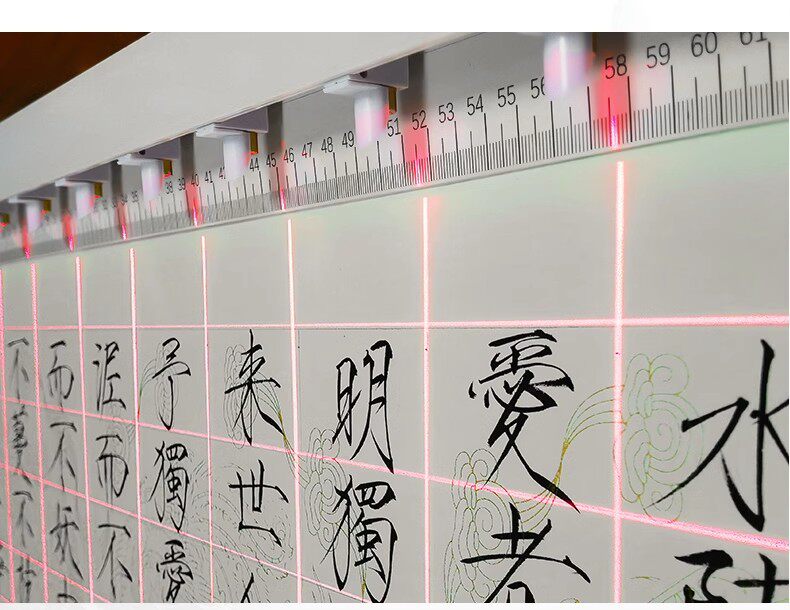 38 39 40 41 44 45 46 47 48 49 51 52 53 54 55 56 58 59 60 61
水
愛者
明獨
来世
予獨愛
泥而不
而不妖
不蔓不